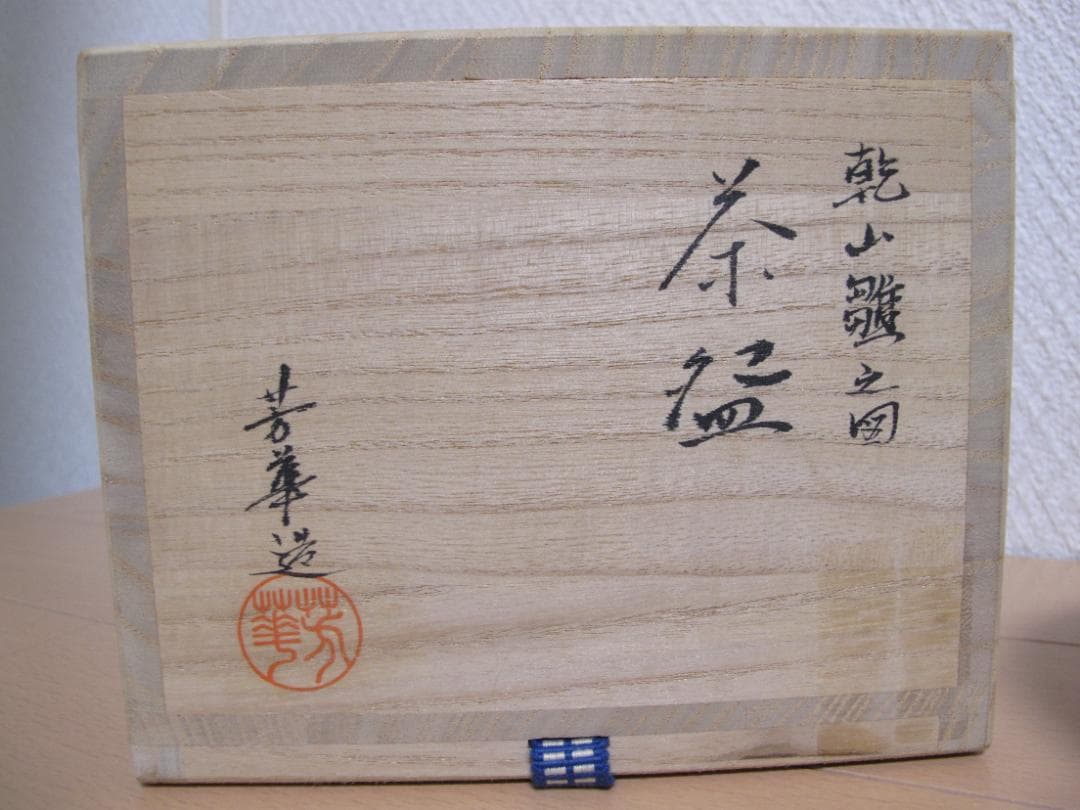 乾山雛之図
茶盌
芳華造
芳華